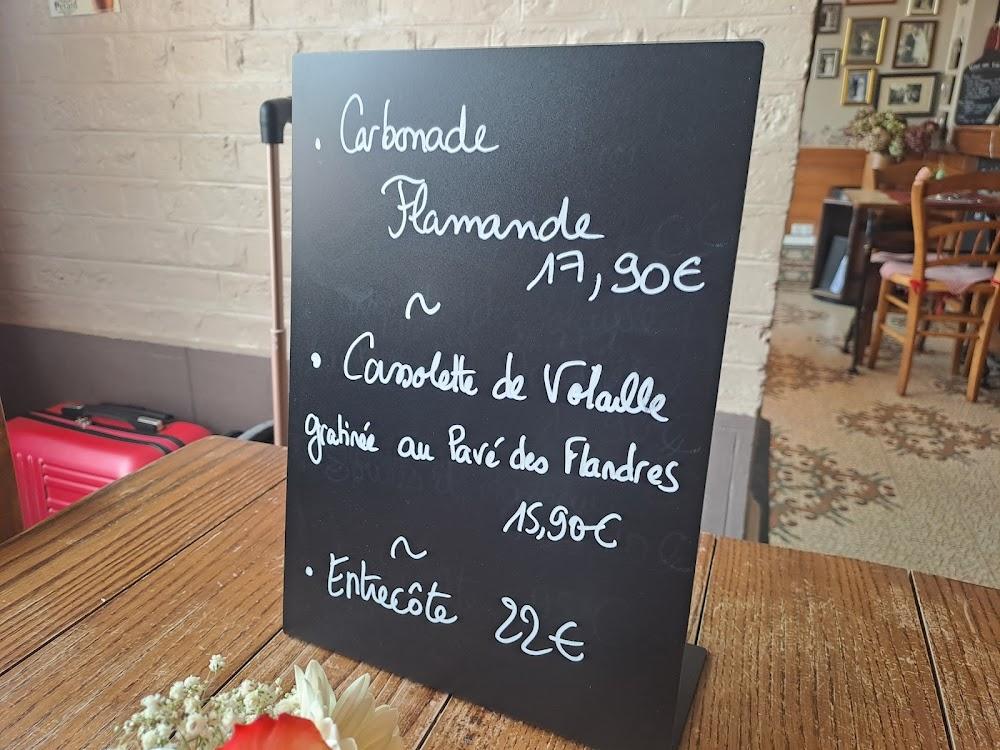 · Carbonade
Flamande
17,90€
~
· Cassolette de Volaille
gratinée au Pavé des Flandres
15,90€
~
· Entrecôte 22€